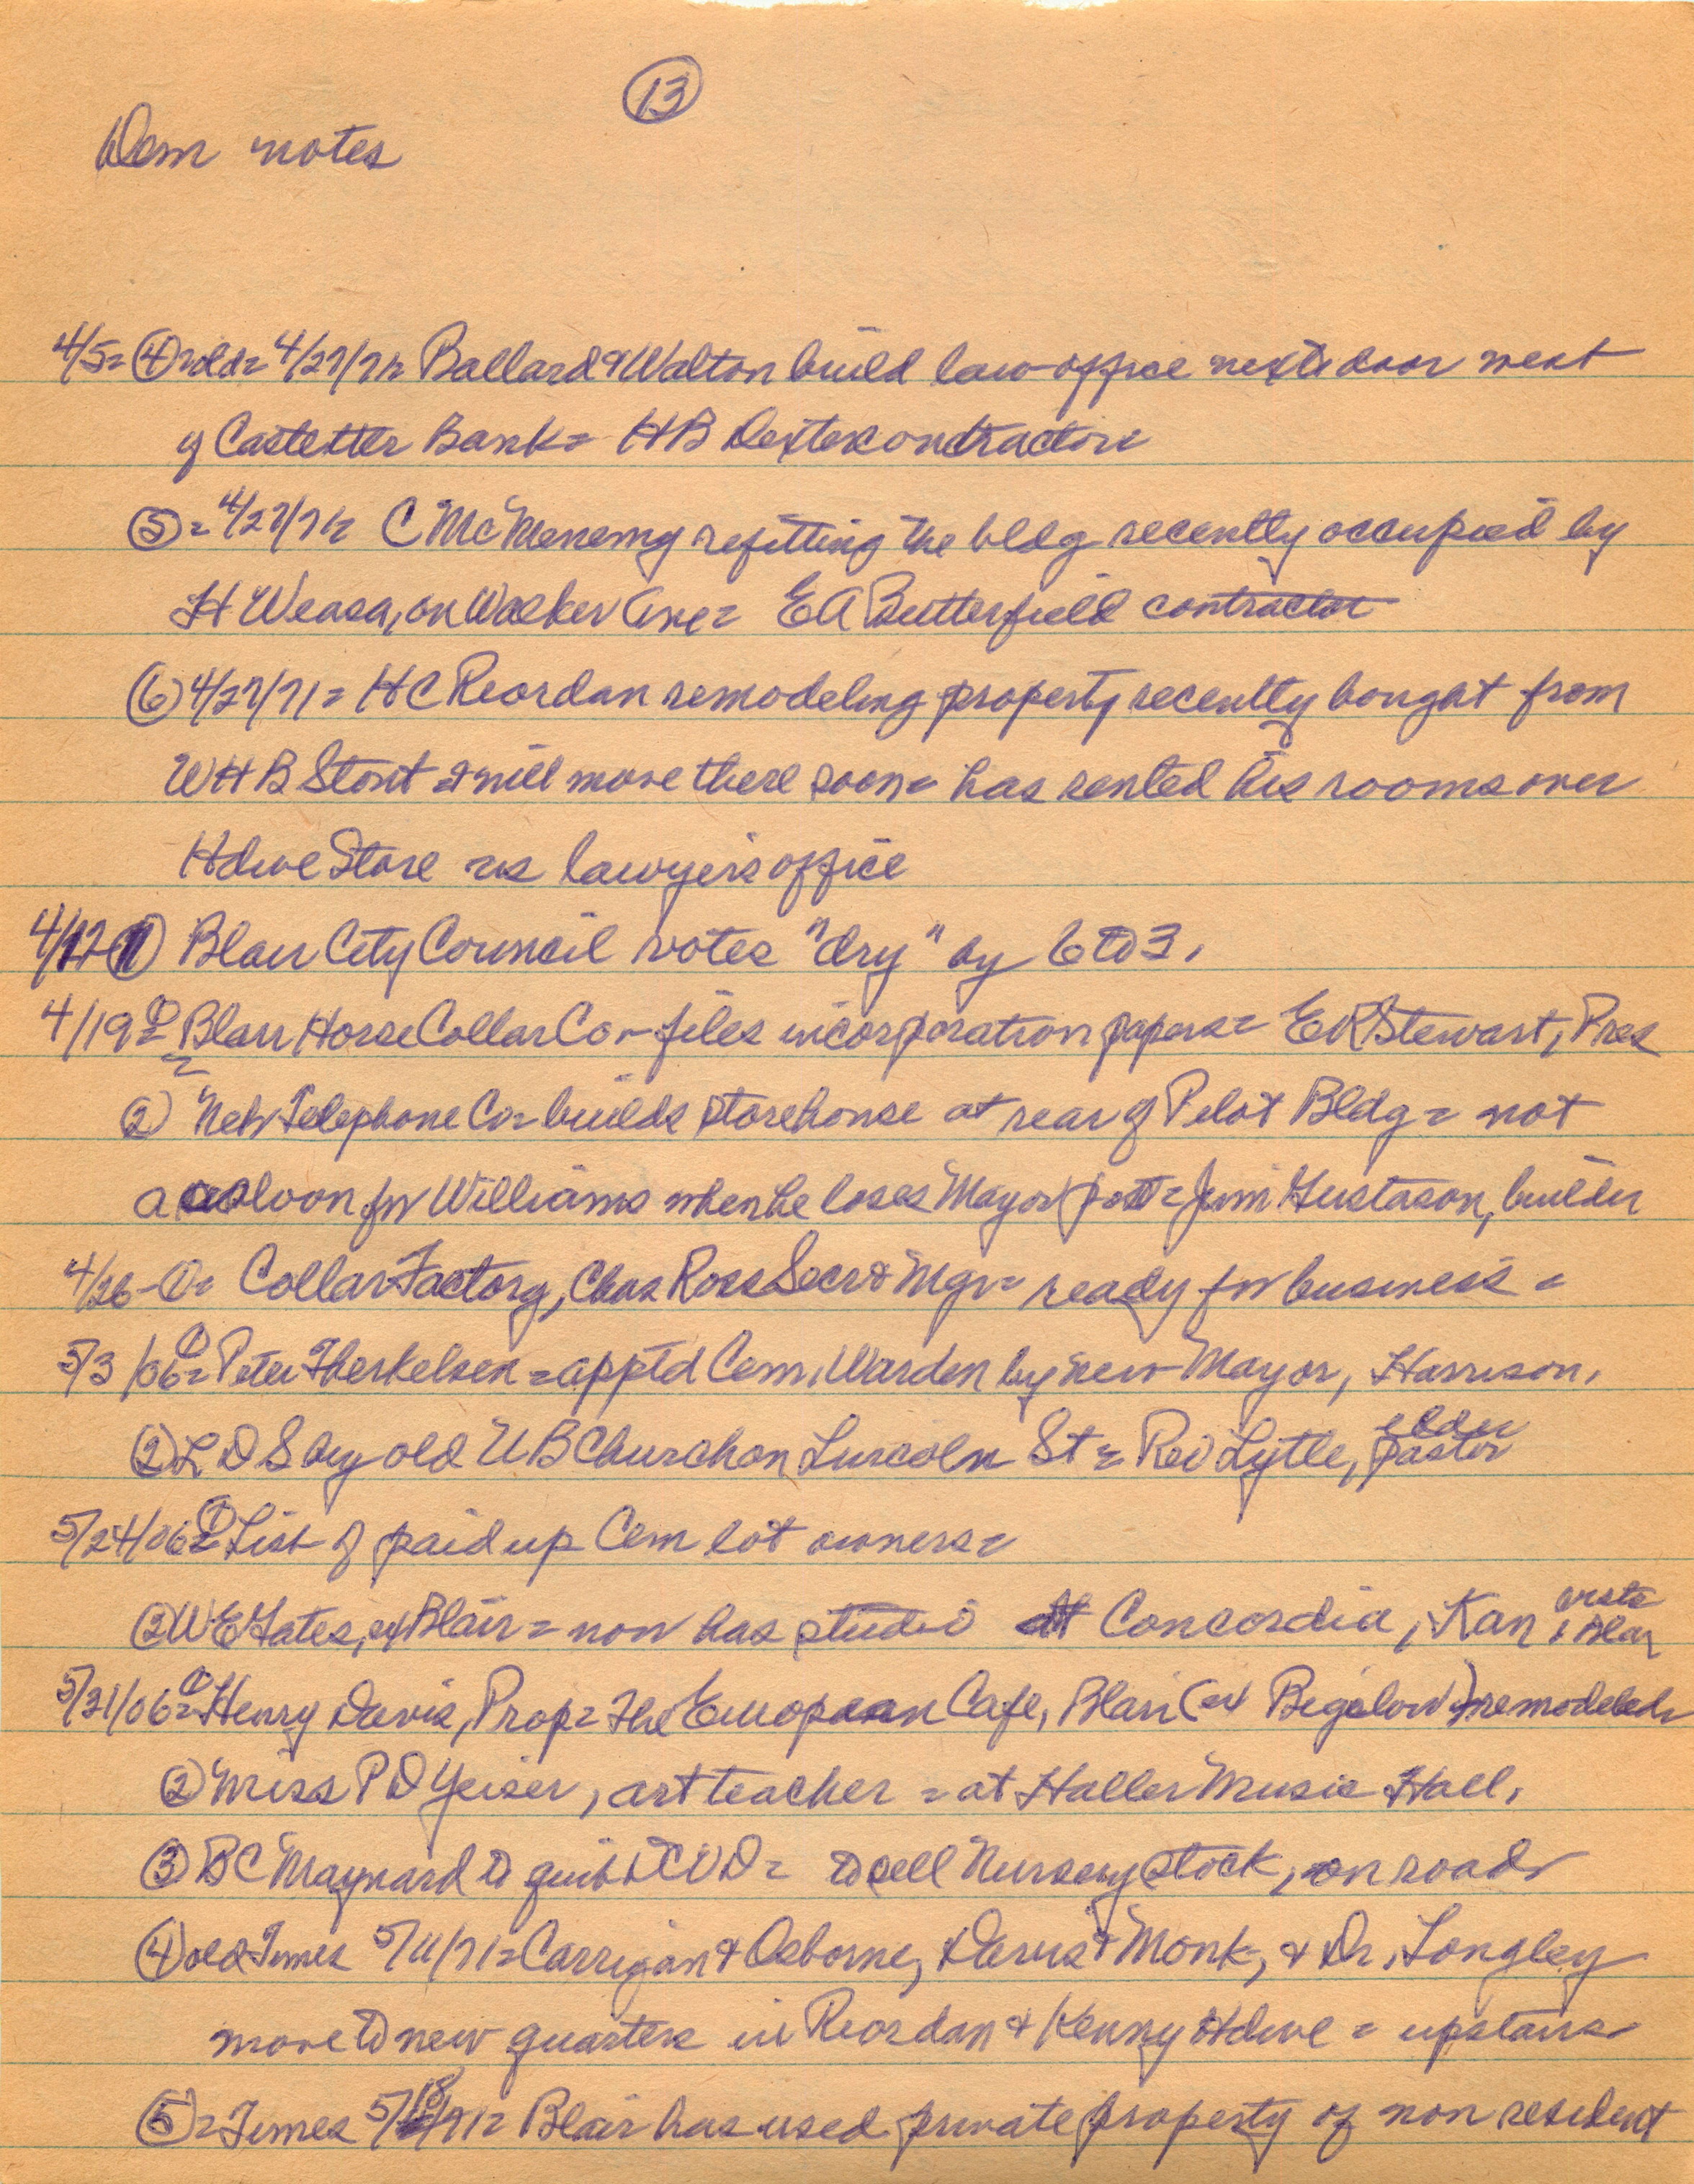 13
Dem notes
4/5= ④ old= 4/27/71= Ballard & Walton build law office next door west
of Castetter Bank= HB Dexter contractor
⑤= 4/27/71= C McMenemy refitting the bldg recently occupied by
H Weasa, on Walker Ave= E A Butterfield contractor
⑥ 4/27/71= HC Reordan remodeling property recently bought from
WHB Stout & will move there soon= has rented his rooms over
Hdwe Store as lawyers office
4/12 ① Blair City Council votes "dry" by 6 to 3.
4/19 ①= Blair Horse Collar Co - files incorporation papers= ER Stewart, Pres
② Neb Telephone Co= builds storehouse at rear of Pilot Bldg= not
a saloon for Williams when he loses Mayor post= Jim Gustason, builder
4/26-①= Collar Factory, Chas Ross Secr & Mgr= ready for business=
5/3/06 ①= Peter Therkelsen= apptd Cem. Warden by new Mayor, Harrison.
② L D S buy old UB Church on Lincoln St= Rev Lytle, elder pastor
5/24/06 ①= List of paid up Cem lot owners=
② WE Gates, ex Blair= now has studio at Concordia, Kan visits Blair
5/31/06 ①= Henry Davis, Prop= The European Cafe, Blair (ex Bigelow) remodeled=
② Miss P D Yeiser, art teacher= at Haller Music Hall.
③ BC Maynard to quit DCVD= to sell Nursery stock, on road
④ old Times 5/11/71= Carrigan & Osborne, Davis & Monk, & Dr. Longley
move to new quarters in Reordan & Kenny Hdwe= upstairs
⑤= Times 5/18/71= Blair has used private property of non resident